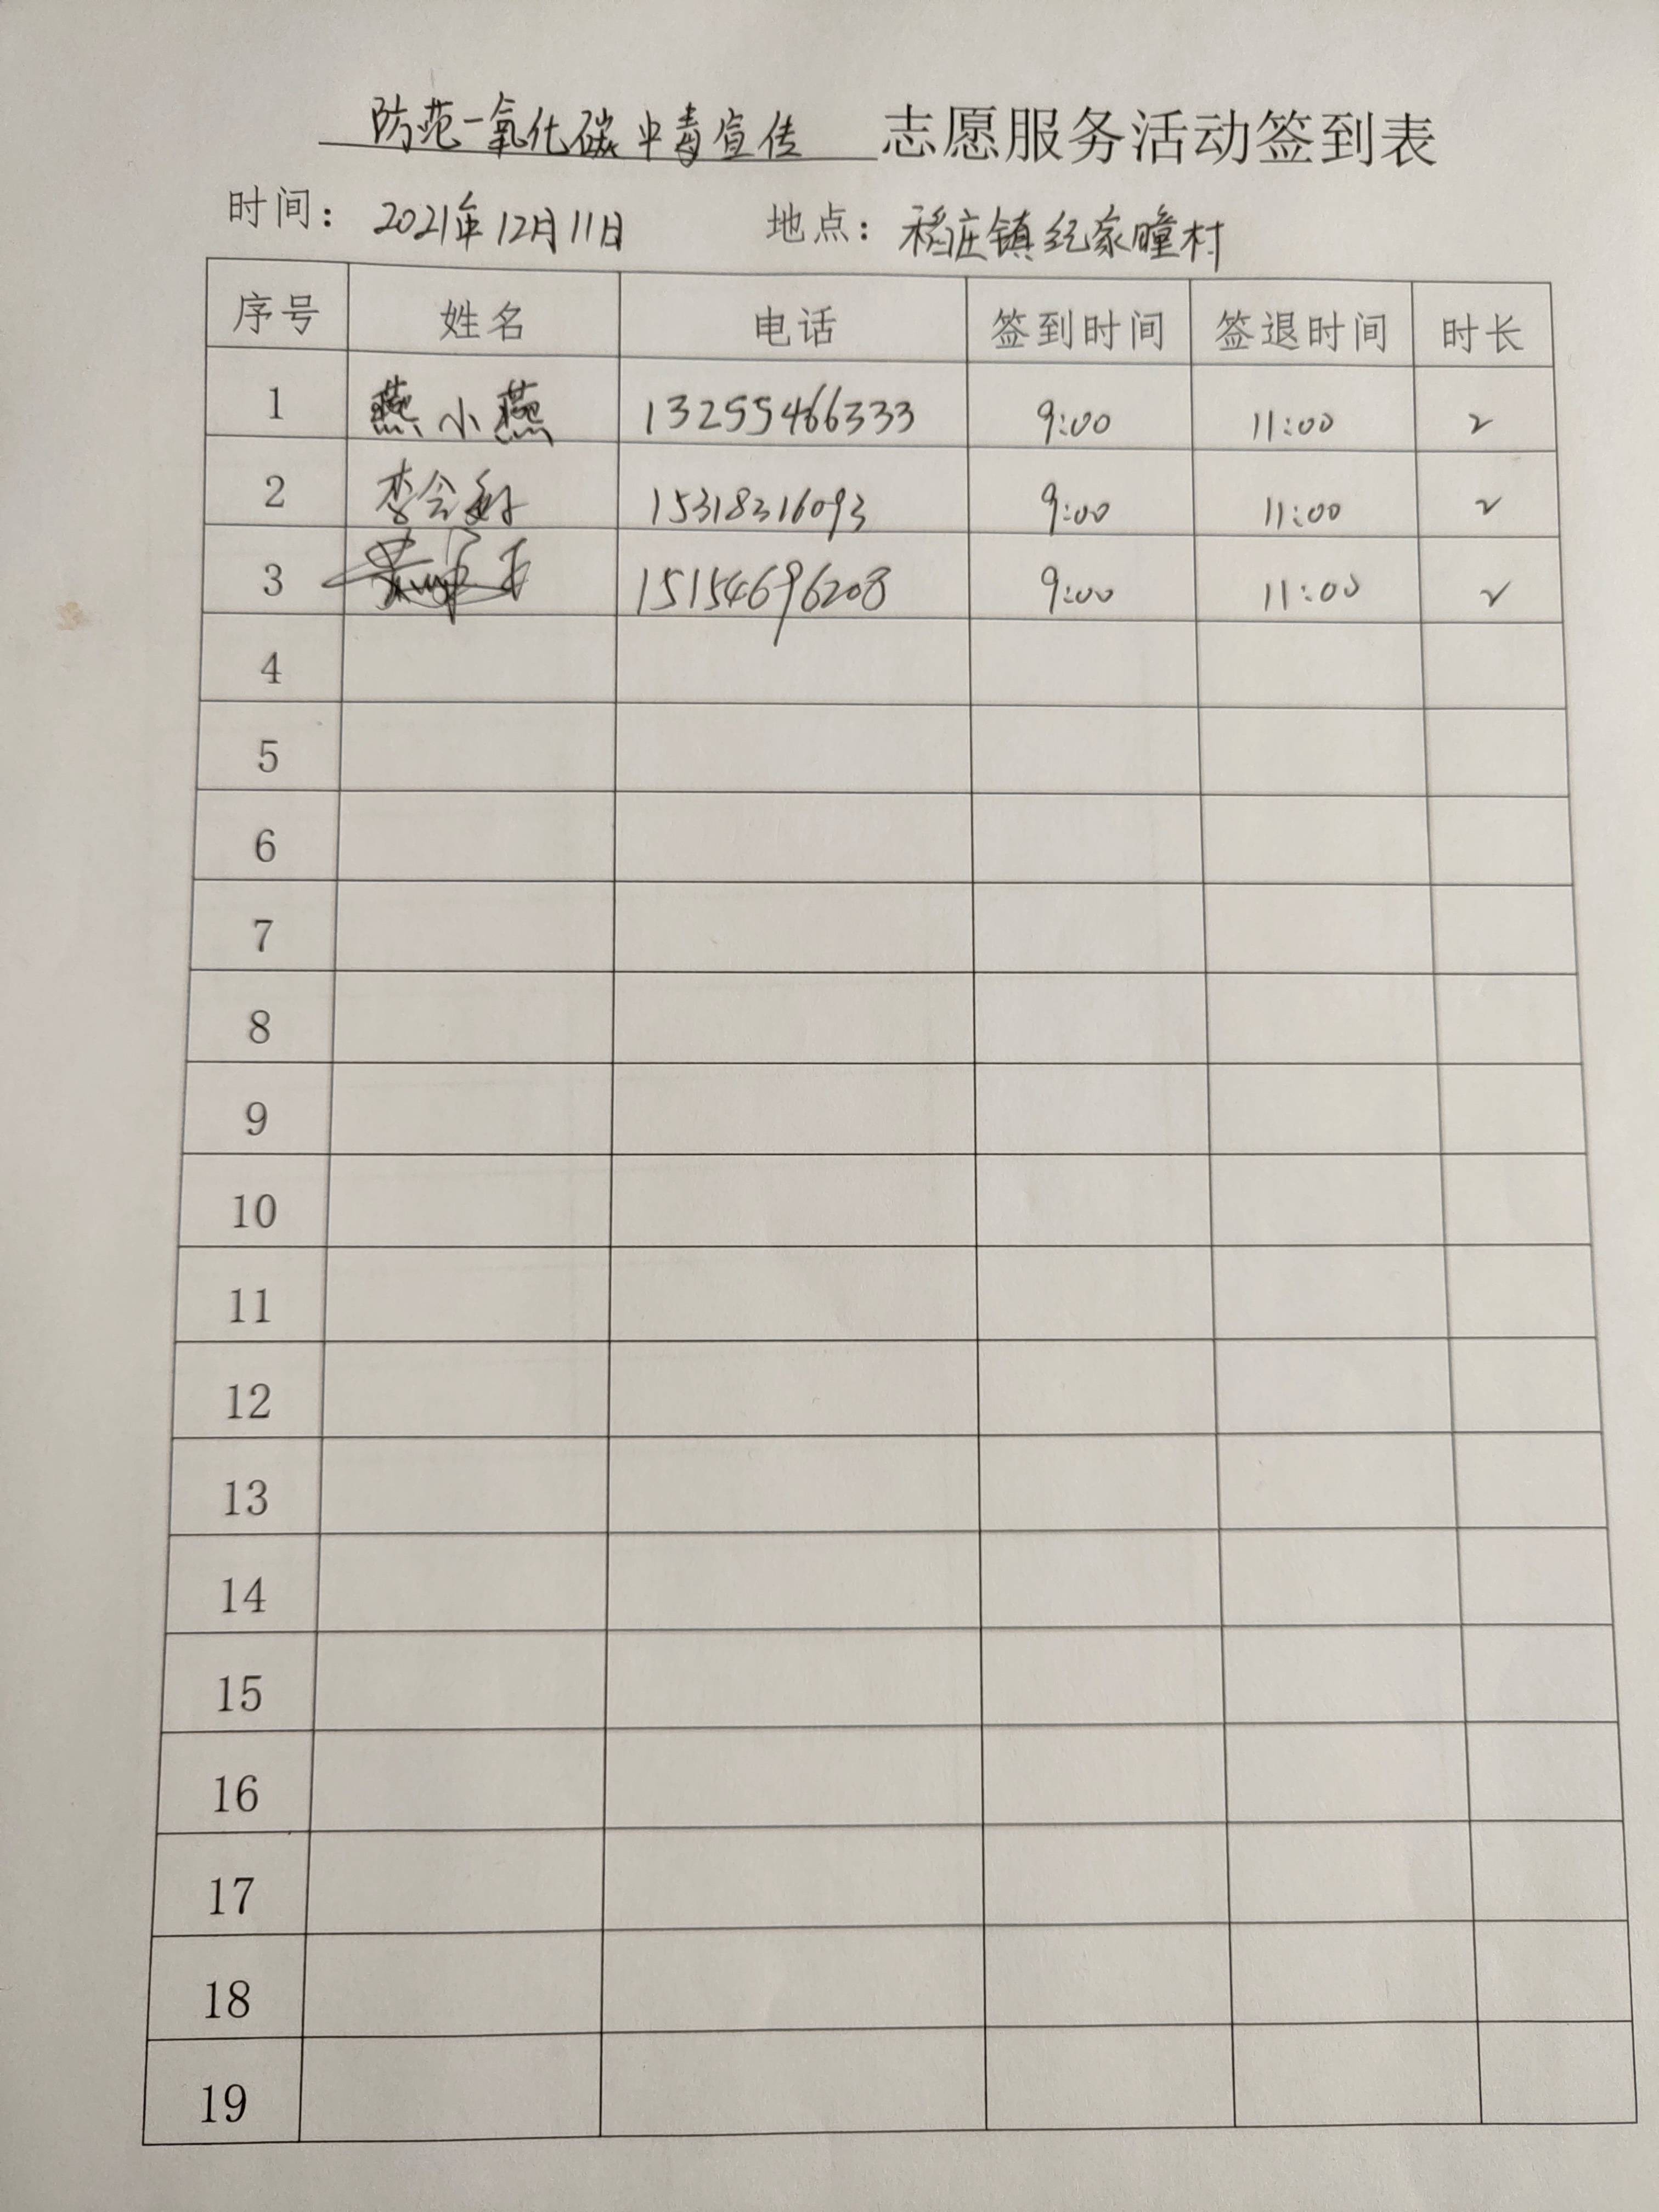 防范一氧化碳中毒宣传 志愿服务活动签到表
时间: 2021年12月11日 地点: 稻庄镇纪家疃村
序号 姓名 电话 签到时间 签退时间 时长
1 燕小燕 13255466333 9:00 11:00 2
2 李会 15318316093 9:00 11:00 2
3 15154696208 9:00 11:00 2
4
5
6
7
8
9
10
11
12
13
14
15
16
17
18
19